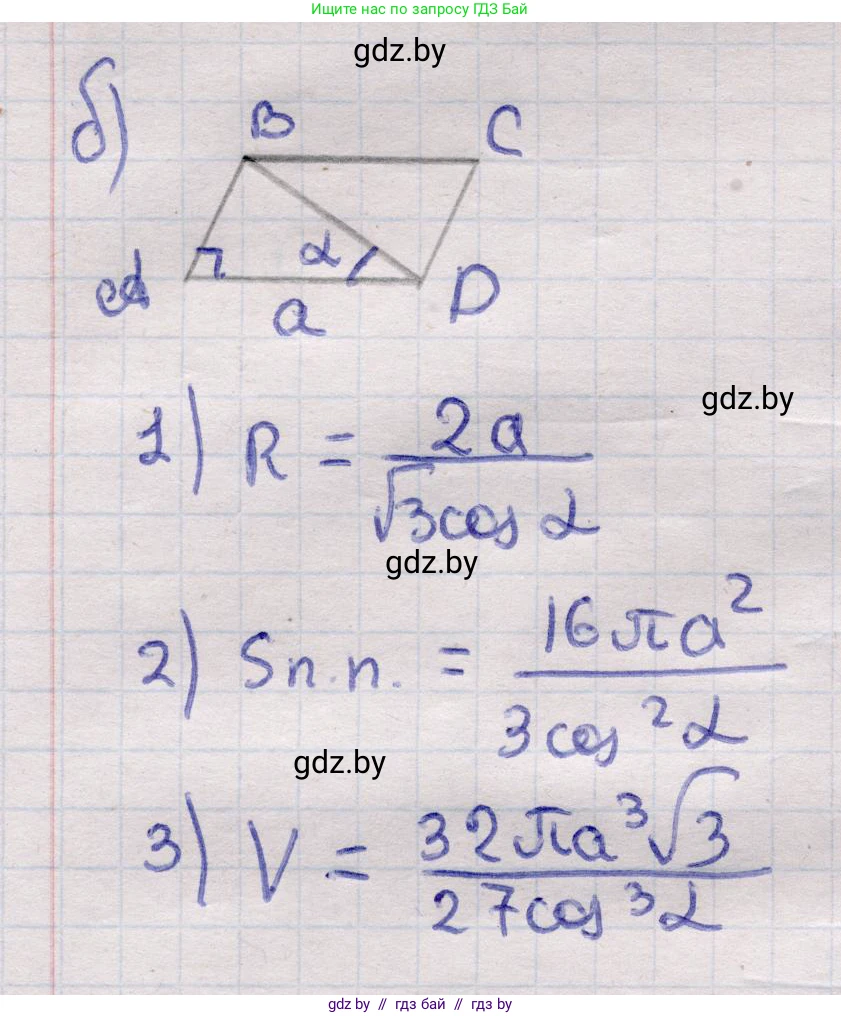 Ищите нас по запросу ГДЗ Бай
gdz.by
б)
B C
A α D
a
gdz.by
1) R = 2a / √3cos α
gdz.by
2) Sп.п. = 16πa² / 3cos²α
gdz.by
3) V = 32πa³√3 / 27cos³α
gdz.by // гдз бай // gdz.by